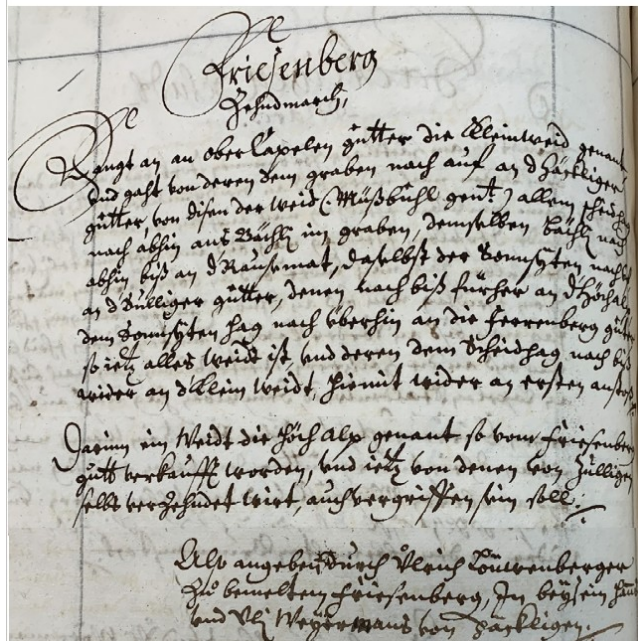 Friesenberg
Zehndmarch,
Fangt an an ober Capelen gütter die Kleinweid genant,
und gaht von deren dem graben nach auf an d'Häckliger
gütter, von disen der weid (Müßbühl gent.) allem scheidhag
nach abhin ans Bächli im graben, demselben bächli nach
abhin biß an d'Rausemat, daselbst der Sonnsyten nach
an d'Sulliger gütter, denen nach biß fürher an d'Höchalp
dem Sonnsyten hag nach überhin an die Herrenberg gütter
so ietz alles weidt ist, und deren dem Scheidhag nach biß
wider an d'Klein weidt, hiemit wider an ersten anstoß.
Darinn ein Weidt die Höch Alp genant so vom Friesenberg
gutt verkaufft worden, und ietz von denen von Züllligen
selbs verzehndet wirt, auch vergriffen sein soll.
Also angeben durch Ulrich Löüwenberger
zu bemeltem Friesenberg, In beysein Hans
und Uli Weyermans von Häckligen.